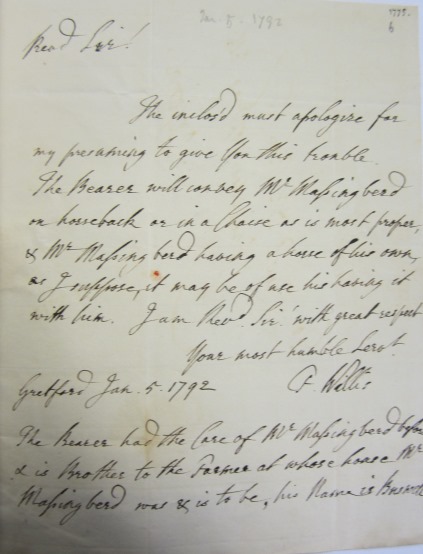 Jan. 5. 1792
6
Revd Sir!
The inclos'd must apologize for
my presuming to give You this trouble.
The Bearer will convey Mr Massingberd
on horseback or in a Chaise as is most proper,
& Mr Massingberd having a horse of his own,
as I suppose, it may be of use his having it
with him. I am Revd Sir! with great respect
Your most humble Servt
F Willis
Gretford Jan. 5. 1792
The Bearer had the Care of Mr Massingberd before
& is Brother to the Farmer at whose house Mr
Massingberd was & is to be, his Name is